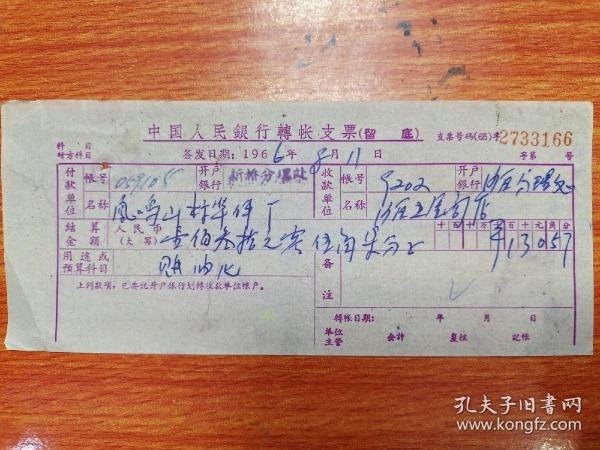 中国人民銀行轉帐支票(留 底) 支票号码(65)字2733166
科 目
对方科目 签发日期：1966年8月11日 字第 号
付款单位 帐号 059105 开户銀行 新桥分理处 收款单位 帐号 9202 开户銀行
名称 凤鸣山 厂 名称
结算金额 人民币(大写) 壹佰叁拾元零伍角柒分 十万千百十元角分 ¥13057
用途或預算科目 备注
上列款项，已委託开户銀行划轉收款单位帐户。
轉帐日期： 年 月 日
单位主管 会計 复核 記帐
孔夫子旧书网
www.kongfz.com